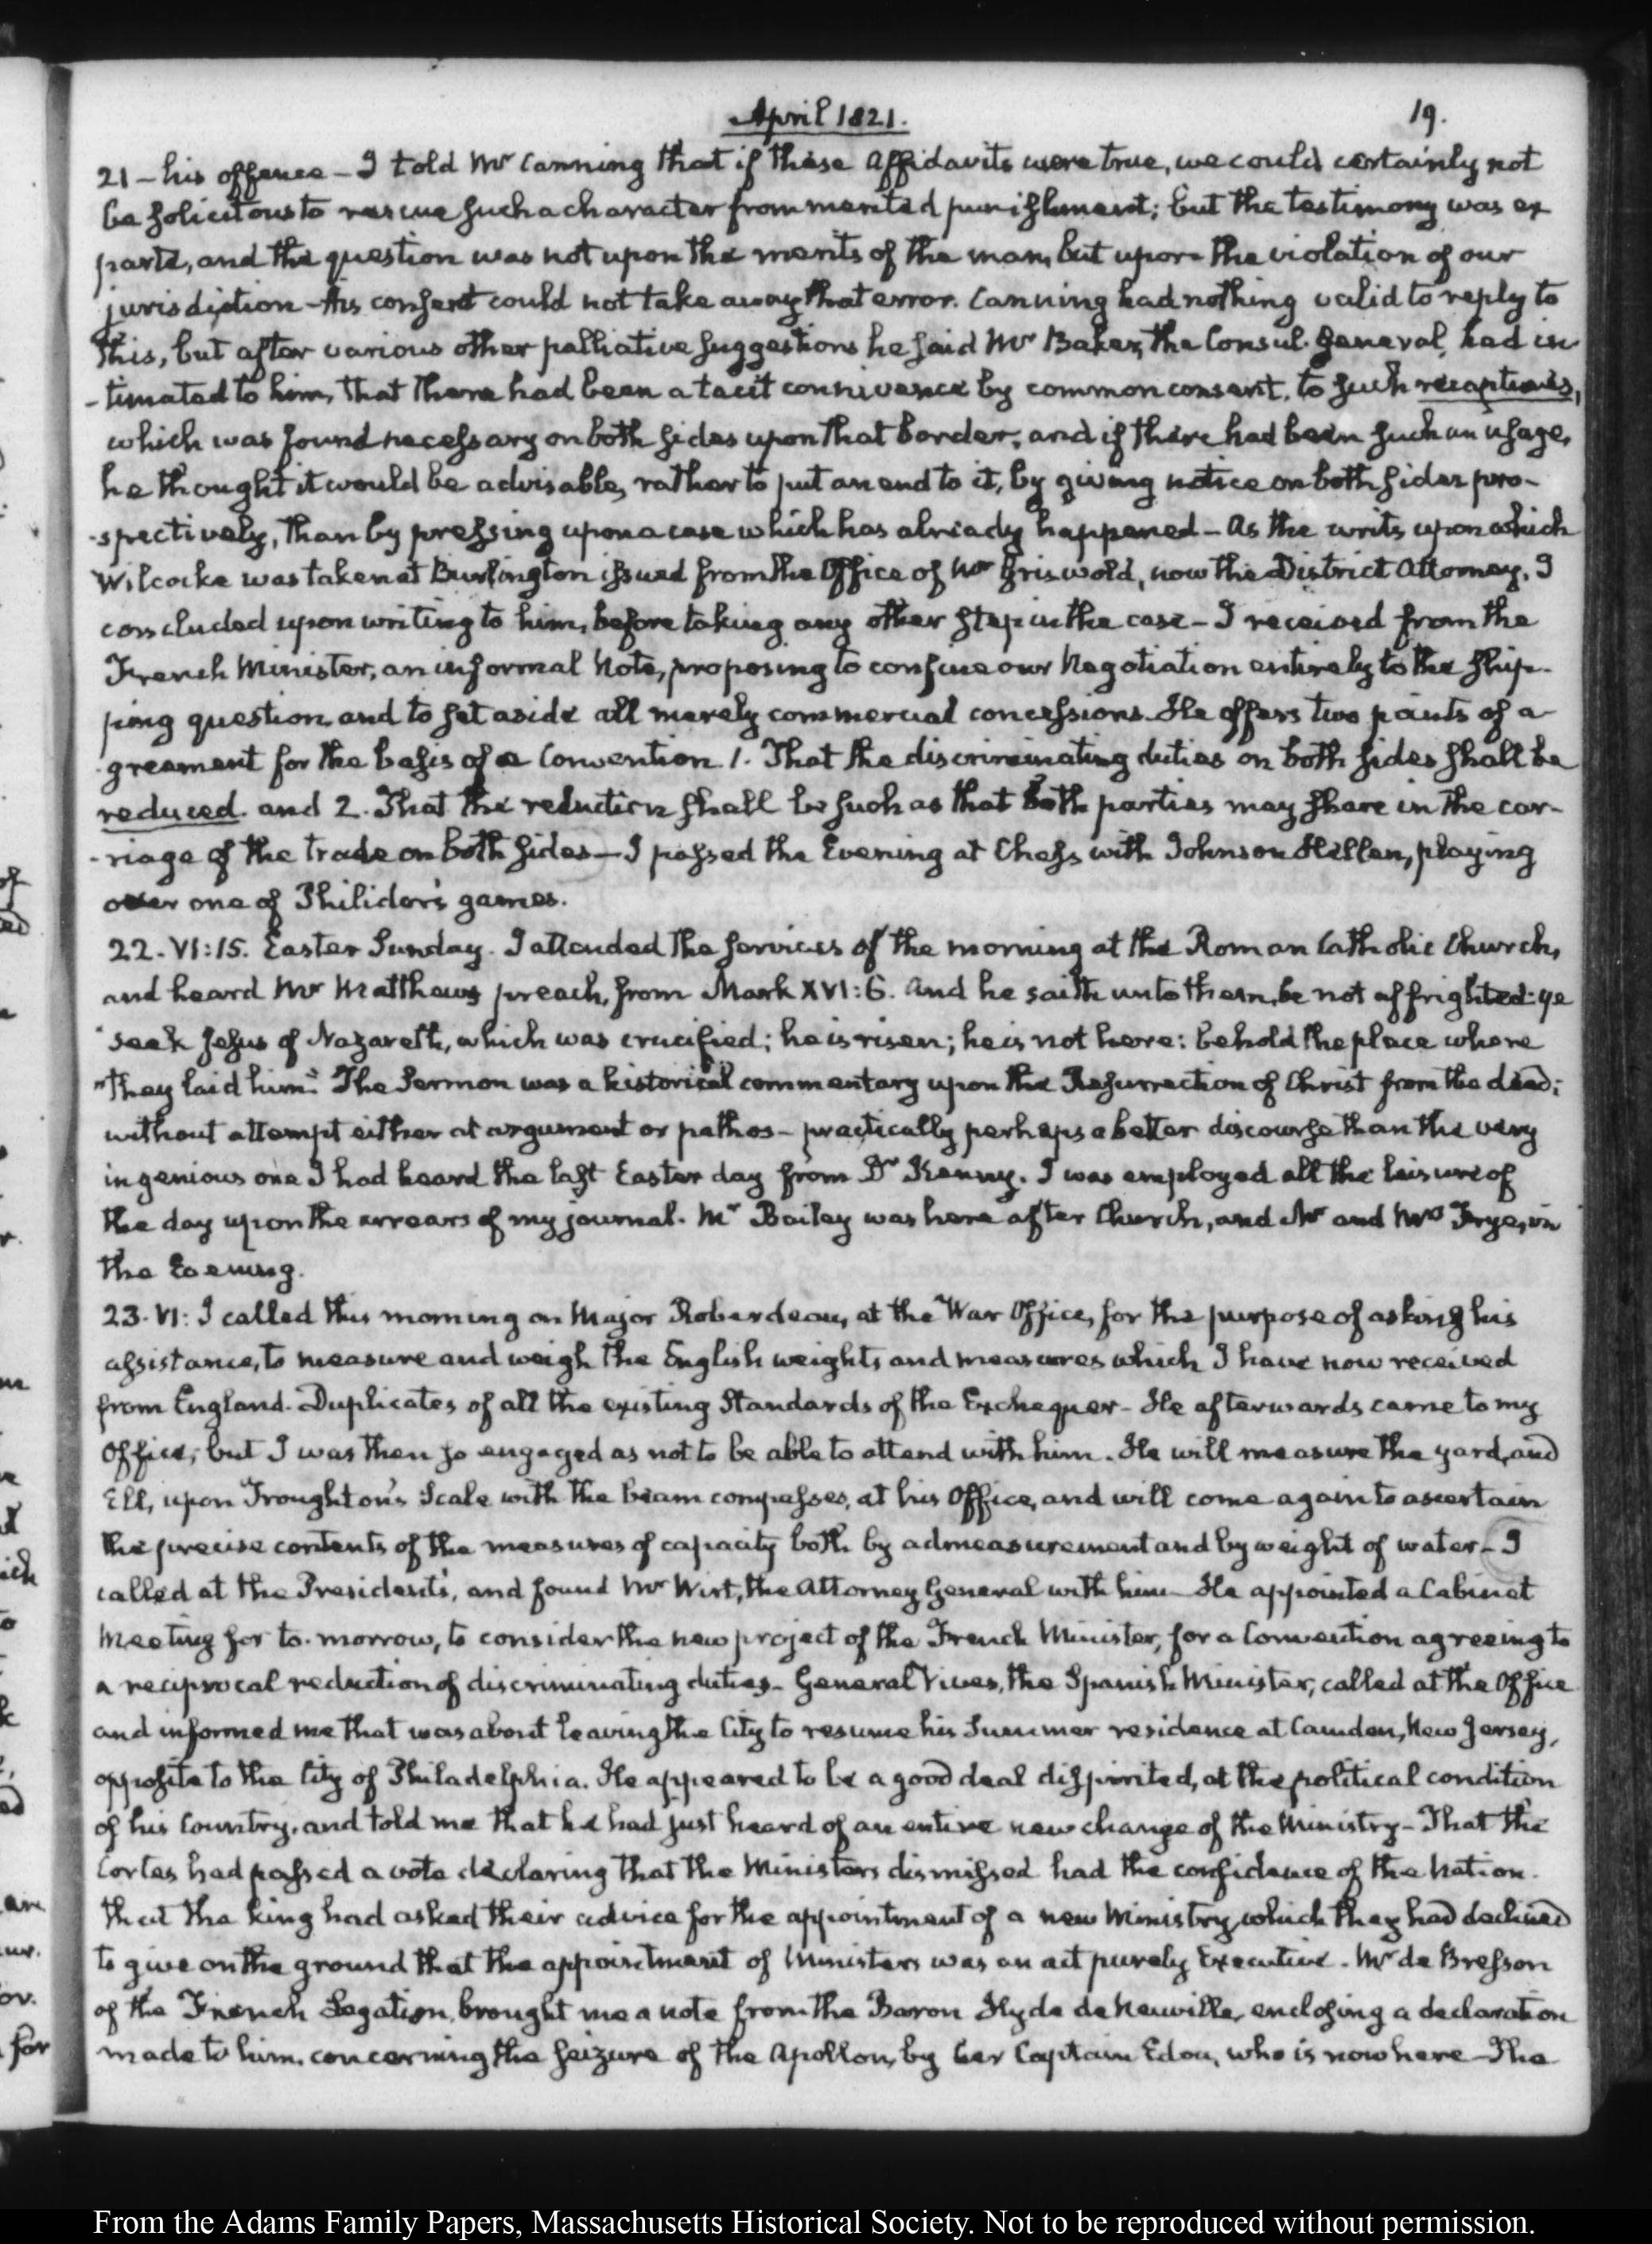 April 1821.
19.
21 - his offence - I told Mr Canning that if these affidavits were true, we could certainly not
be solicitous to rescue such a character from merited punishment; but the testimony was ex
parte, and the question was not upon the merits of the man, but upon the violation of our
jurisdiction - His consent could not take away that error. Canning had nothing valid to reply to
this, but after various other palliative suggestions he said Mr Baker, the Consul General, had in-
-timated to him, that there had been a tacit connivance by common consent, to such recaptions,
which was found necessary on both sides upon that border; and if there had been such an usage,
he thought it would be advisable, rather to put an end to it, by giving notice on both sides pro-
-spectively, than by pressing upon a case which has already happened - As the writs upon which
Wilcocke was taken at Burlington issued from the Office of Mr Griswold, now the District Attorney, I
concluded upon writing to him, before taking any other step in the case - I received from the
French Minister, an informal Note, proposing to confine our Negotiation entirely to the ship-
ping question, and to set aside all merely commercial concessions. He offers two points of a-
greement for the basis of a Convention 1. That the discriminating duties on both sides shall be
reduced. and 2. That the reduction shall be such as that both parties may share in the car-
-riage of the trade on both sides - I passed the Evening at Chess with Johnson Hellen, playing
over one of Philidor's games.
22. VI:15. Easter Sunday. I attended the services of the morning at the Roman Catholic Church,
and heard Mr Matthews preach, from Mark XVI:6. And he saith unto them, be not affrighted: ye
"seek Jesus of Nazareth, which was crucified; he is risen; he is not here: behold the place where
"they laid him." The Sermon was a historical commentary upon the Resurrection of Christ from the dead;
without attempt either at argument or pathos - practically perhaps a better discourse than the very
ingenious one I had heard the last Easter day from Dr Kenny. I was employed all the leisure of
the day upon the arrears of my journal. Mr Bailey was here after Church, and Mr and Mrs Frye, in
the Evening.
23. VI: I called this morning on Major Roberdeau, at the War Office, for the purpose of asking his
assistance, to measure and weigh the English weights and measures which I have now received
from England. Duplicates of all the existing Standards of the Exchequer - He afterwards came to my
Office; but I was then so engaged as not to be able to attend with him. He will measure the yard, and
Ell, upon Troughton's Scale with the beam compasses, at his Office, and will come again to ascertain
the precise contents of the measures of capacity both by admeasurement and by weight of water - I
called at the President's, and found Mr Wirt, the Attorney General with him - He appointed a Cabinet
Meeting for to-morrow, to consider the new project of the French Minister, for a Convention agreeing to
a reciprocal reduction of discriminating duties - General Vives, the Spanish Minister, called at the Office
and informed me that was about leaving the City to resume his Summer residence at Camden, New Jersey,
opposite to the City of Philadelphia. He appeared to be a good deal dispirited, at the political condition
of his Country, and told me that he had just heard of an entire new change of the Ministry - That the
Cortes had passed a vote declaring that the Ministers dismissed had the confidence of the Nation.
that the king had asked their advice for the appointment of a new Ministry, which they had declined
to give on the ground that the appointment of Ministers was an act purely Executive. Mr de Bresson
of the French Legation, brought me a note from the Baron Hyde de Neuville, enclosing a declaration
made to him, concerning the seizure of the Apollon, by her Captain Edou, who is now here - The
From the Adams Family Papers, Massachusetts Historical Society. Not to be reproduced without permission.